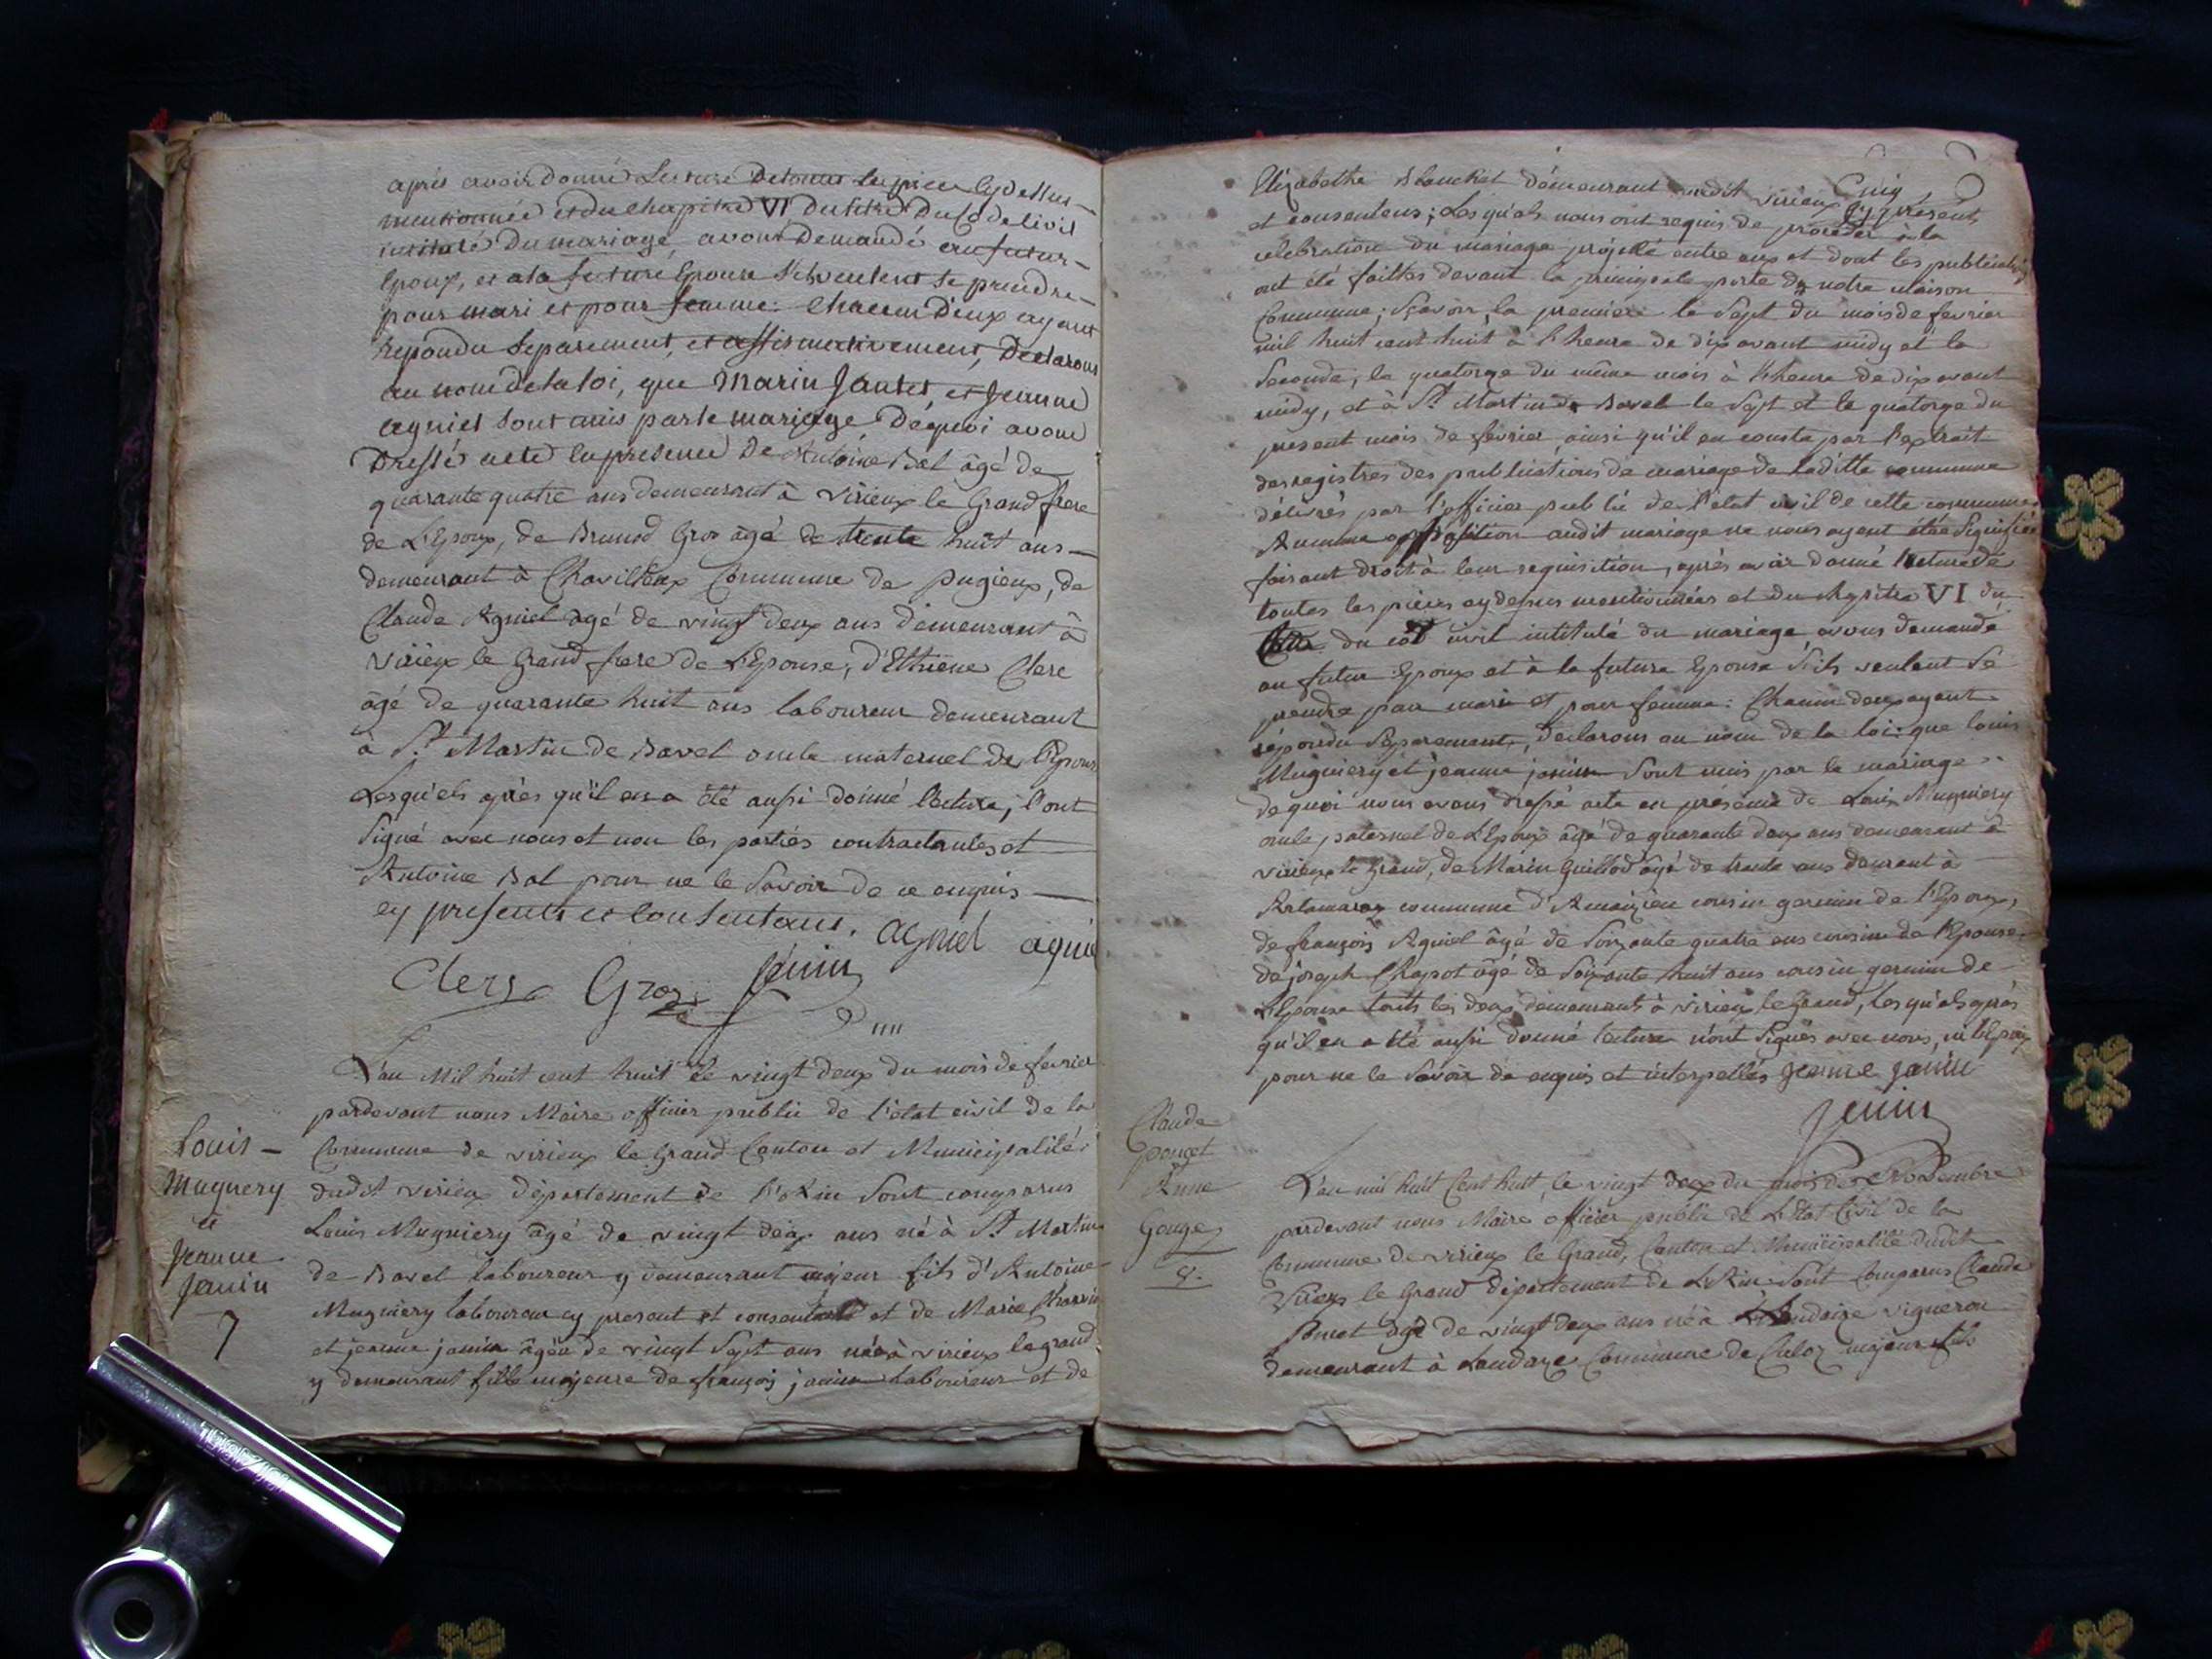 après avoir donné Lecture De toutes les pieces cy Dessus
mentionnées et du chapitre VI Du titre Du Code Civil
intitulé Du mariage, avons Demandé au futur
Epoux, et a la future Epouse s'ils veulent se prendre
pour mari et pour femme: chacun D'eux ayant
repondu separement, et affirmativement, Declarons
au nom de la loi, que Marin Jantet, et Jeanne
agniel sont unis par le mariage De quoi avons
Dressé acte en presence De Antoine Bal âgé de
quarante quatre ans demeurant à virieux le Grand frere
de L'Epoux, de Brunod Gros âgé de trente huit ans
demeurant à Chavilleux Commune de pugieux, de
Claude Agniel âgé de vingt deux ans demeurant à
virieux le Grand frere de L'Epouse, d'Ethiene Clerc
âgé de quarante huit ans laboureur demeurant
à St Martin de Bavel oncle maternel de l'Epoux
Lesqu'els après qu'il en a été aussi donné lecture, l'ont
signé avec nous et non les parties contractantes et
Antoine Bal pour ne le savoir de ce enquis
cy presents et consentans. agniel agniel
Clerc Gros Jenin
L'an Mil huit cent huit et le vingt deux du mois de fevrier
pardevant nous Maire officier public de l'état civil de la
Louis
Commune de virieux le Grand Canton et Municipalité
Mugnery
dudit virieux département de l'Ain sont comparus
et
Louis Mugniery âgé de vingt deux ans né à St Martin
Jeanne
de Bavel laboureur y demeurant majeur fils d'Antoine
Janin
Mugniery laboureur cy present et consentant et de Marie Charvin
7
et jeanne janin âgée de vingt sept ans née à virieux le grand
y demeurant fille majeure de françois janin Laboureur et de
Elizabethe Blanchet demeurant audit virieux cy présents
et consentens; Lesqu'els nous ont requis de proceder à la
celebration du mariage projetté entre eux et dont les publications
ont été faittes devant la principale porte de notre maison
Commune; Sçavoir, la premiere le sept du mois de fevrier
mil huit cent huit à l'heure de dix avant midy et la
seconde, le quatorze du même mois à l'heure de dix avant
midy, et à St Martin de Bavel le sept et le quatorze du
present mois de février ainsi qu'il en conste par l'extrait
des registres des publications de mariage de laditte commune
délivrés par l'officier public de l'état civil de cette commune
Aucune opposition audit mariage ne nous ayent été signifiée
faisant droit à leur requisition, après avoir donné lecture de
toutes les pièces cy dessus mentionnées et du chapitre VI du
titre du code civil intitulé du mariage avons demandé
au futur Epoux et à la future Epouse s'ils veulent se
prendre pour mari et pour femme: Chacun deux ayant
répondu separement, declarons au nom de la loi: que louis
Mugniery et jeanne janin sont unis par le mariage
de quoi nous avons dressé acte en présence de Louis Mugniery
oncle paternel de L'Epoux âgé de quarante deux ans demeurant à
virieux le Grand, de Marin Guillod âgé de trente ans demrant à
Artamaray commune d'Ameizieu cousin germin de l'Epoux,
de françois Agniel âgé de soixante quatre ans cousin de l'Epouse
de joseph Chapot âgé de soixante huit ans cousin germin de
L'Epouse touts les deux demeurants à virieux le Grand, Lesqu'els après
qu'il en a été aussi donné lecture n'ont signés avec nous, ni l'Epoux
pour ne le savoir de enquis et interpellés Jeanne Janin
Jenin
Claude
poncet
Anne
Gouge
8.
L'an mil huit Cent huit, le vingt deux du mois de Novembre
pardevant nous Maire officier public de L'Etat Civil de la
Commune de virieux le Grand, Canton et Municipalité dudit
Virieux le Grand département de L'Ain Sont Comparus Claude
Poncet âgé de vingt deux ans né à Landaize vigneron
demeurant à Landaze Commune de Culoz majeur fils